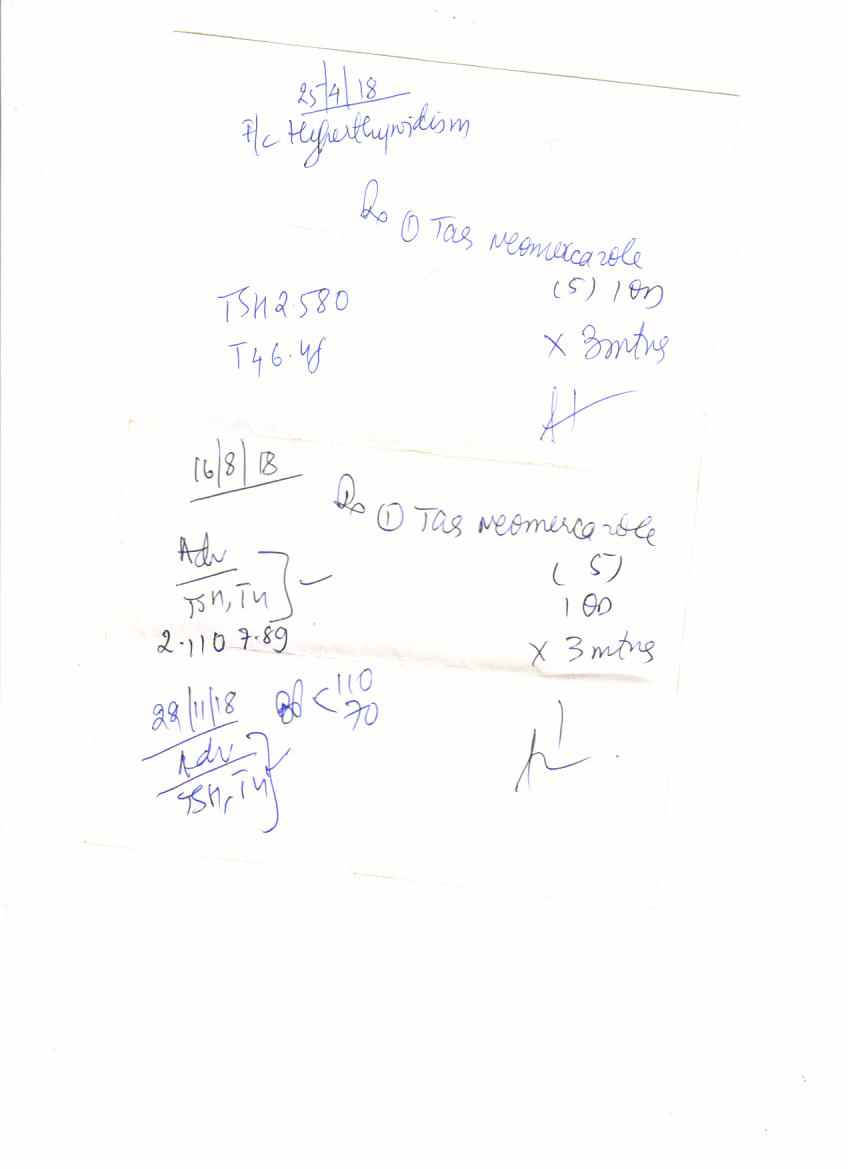 25/4/18
F/c Hyperthyroidism
Rx ① Tab neomercazole
(5) 1 OD
TSH 2.580
T4 6.48
x 3mths
16/8/18
Rx ① Tab neomercazole
Adv
(5)
TSH, T4
1 OD
2.110 7.89
x 3mths
29/11/18 BP < 110
70
Adv
TSH, T4